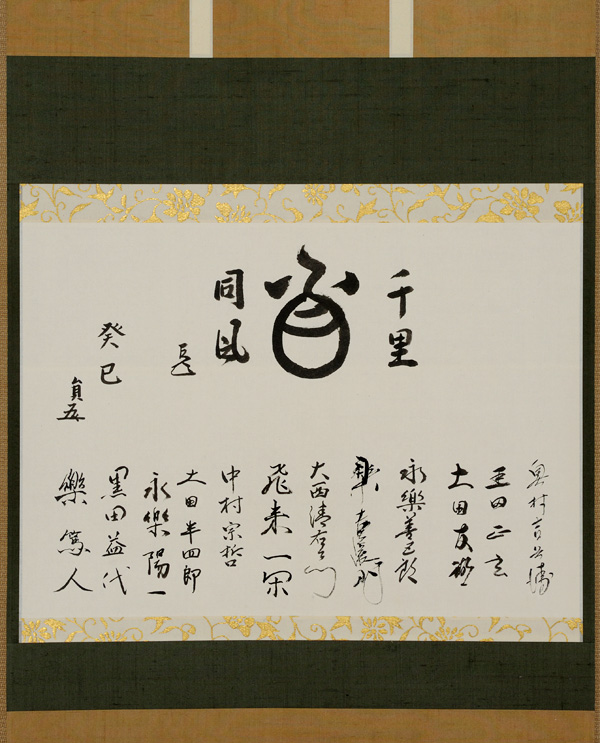 千里
同風
癸巳
奥村吉兵衛
黒田正玄
土田友湖
永樂善五郎
樂吉左衞門
大西清右衛門
飛来一閑
中村宗哲
土田半四郎
永樂陽一
黒田益代
樂篤人